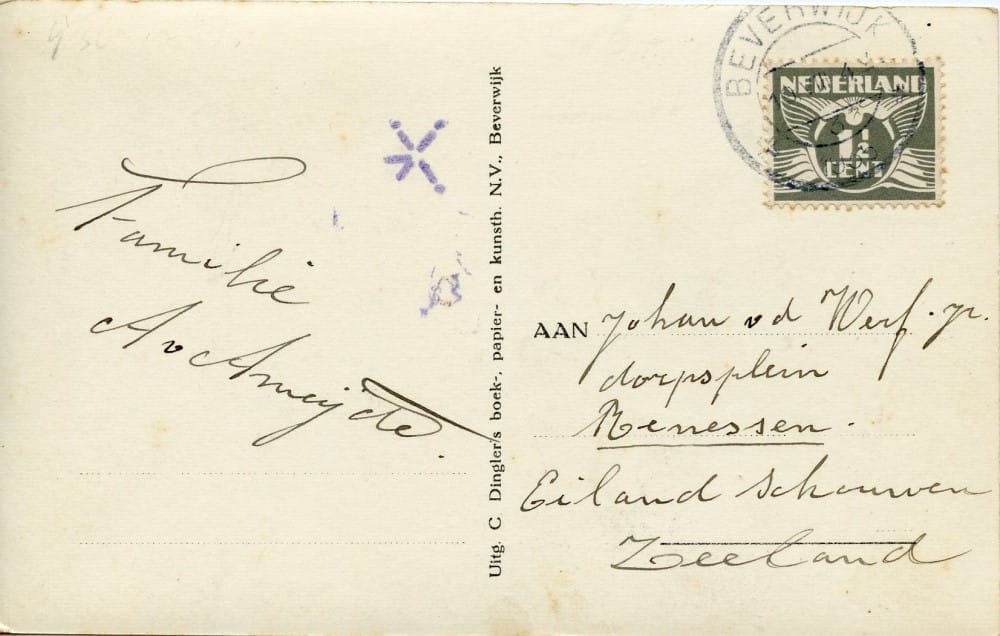 Familie
A v Ameijde.
Uitg. C Dingler's boek-, papier- en kunsth. N.V., Beverwijk
BEVERWIJK
NEDERLAND
1½
CENT
AAN Johan v d Werf. jr.
dorpsplein
Renessen.
Eiland Schouwen
Zeeland